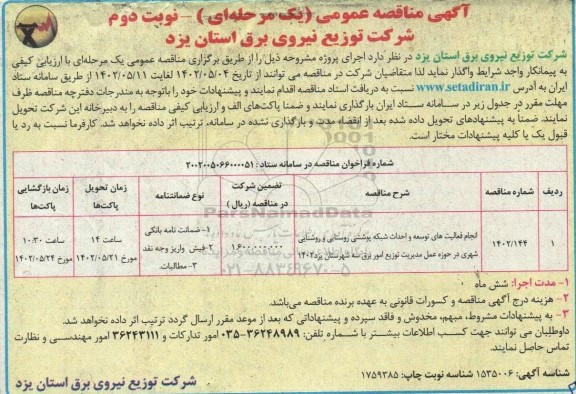 آگهی مناقصه عمومی (یک مرحله‌ای) – نوبت دوم
شرکت توزیع نیروی برق استان یزد
شرکت توزیع نیروی برق استان یزد در نظر دارد اجرای پروژه مشروحه ذیل را از طریق برگزاری مناقصه عمومی یک مرحله‌ای با ارزیابی کیفی
به پیمانکار واجد شرایط واگذار نماید لذا متقاضیان شرکت در مناقصه می توانند از تاریخ ۱۴۰۲/۰۵/۰۴ لغایت ۱۴۰۲/۰۵/۱۱ از طریق سامانه ستاد
ایران به آدرس www.setadiran.ir نسبت به دریافت اسناد مناقصه اقدام نمایند و پیشنهادات خود را باتوجه به مندرجات دفترچه مناقصه ظرف
مهلت مقرر در جدول زیر در سامانه ستاد ایران بارگذاری نمایند و ضمنا پاکت‌های الف و ارزیابی کیفی مناقصه را به دبیرخانه این شرکت تحویل
نمایند. ضمنا به پیشنهادهای تحویل داده شده بعد از انقضاء مدت و بارگذاری نشده در سامانه، ترتیب اثر داده نخواهد شد. کارفرما نسبت به رد یا
قبول یک یا کلیه پیشنهادات مختار است.
شماره فراخوان مناقصه در سامانه ستاد: ۲۰۰۲۰۰۵۰۶۶۰۰۰۰۵۱
ردیف | شماره مناقصه | شرح مناقصه | تضمین شرکت در مناقصه (ریال) | نوع ضمانتنامه | زمان تحویل پاکت‌ها | زمان بازگشایی پاکت‌ها
۱ | ۱۴۰۲/۱۴۴ | انجام فعالیت های توسعه و احداث شبکه پوششی روستایی و روشنایی شهری در حوزه عمل مدیریت توزیع امور برق سه شهرستان یزد ۱۴۰۲ | ۱۶۰۰۰۰۰۰۰۰ | ۱- ضمانت نامه بانکی ۲-فیش واریز وجه نقد ۳- مطالبات. | ساعت ۱۴ مورخ ۱۴۰۲/۰۵/۲۱ | ساعت ۱۰:۳۰ مورخ ۱۴۰۲/۰۵/۲۴
ParsNamadData
۰۲۱-۸۸۳۴۹۶۷۰-۵
۱- مدت اجرا: شش ماه
۲- هزینه درج آگهی مناقصه و کسورات قانونی به عهده برنده مناقصه می‌باشد.
۳- به پیشنهادات مشروط، مبهم، مخدوش و فاقد سپرده و پیشنهاداتی که بعد از موعد مقرر ارسال گردد ترتیب اثر داده نخواهد شد.
داوطلبان می توانند جهت کسب اطلاعات بیشتر با شماره تلفن: ۳۶۲۴۸۹۸۹-۰۳۵ امور تدارکات و ۳۶۲۴۳۱۱۱ امور مهندسی و نظارت
تماس حاصل نمایند.
شناسه آگهی: ۱۵۳۵۰۰۶ شناسه نوبت چاپ: ۱۷۵۹۳۸۵
شرکت توزیع نیروی برق استان یزد